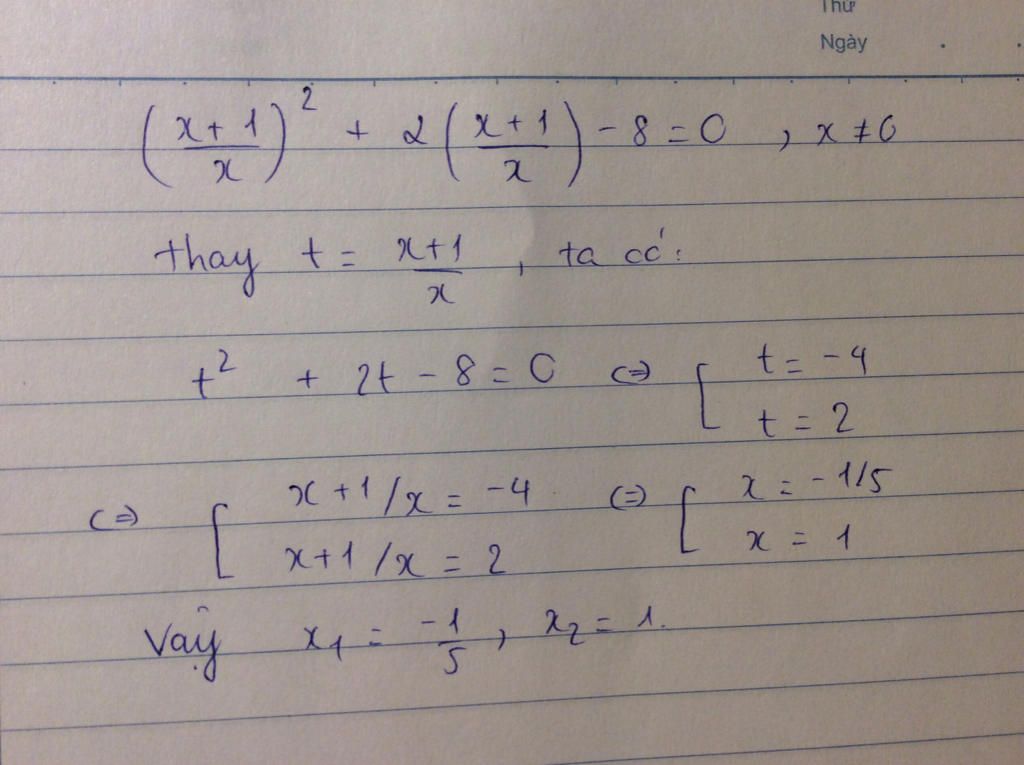 Thứ
Ngày
(x+1/x)² + 2(x+1/x) - 8 = 0 , x ≠ 0
thay t = x+1/x , ta có:
t² + 2t - 8 = 0 <=> [ t = -4
t = 2
<=> [ x+1/x = -4 <=> [ x = -1/5
x+1/x = 2 x = 1
Vậy x₁ = -1/5 , x₂ = 1.